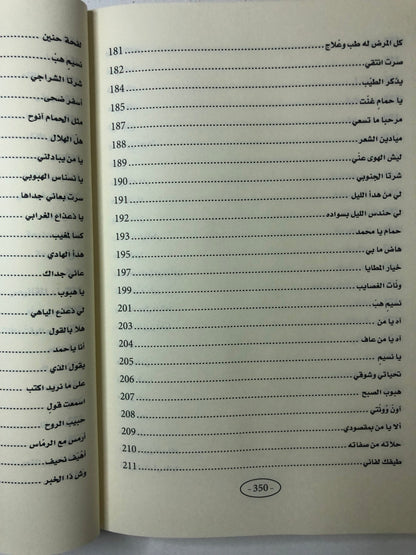 كل المرض له طب وعْلاج 181
صرت انتقي 182
يذكر الطيّب 184
يا حمام غنّت 185
مرحبا ما تسعي 187
ميادين الشعر 188
ليش الهوى عنّي 189
شرتا الجنوبي 190
لي من هدأ الليل 191
لي حندس الليل بسواده 192
حمام يا محمد 193
هاض ما بي 195
خيار المطايا 197
ونّات الغصايب 199
نسيم هبّ 201
آه يا من 203
آه يا من عاف 204
يا نسيم 205
تحياتي وشوقي 206
هبوب الصبح 207
اونّ ونّتي 208
ألا يا من بمقصودي 209
حلاته من صفاته 210
طيفك لفاني 211
- 350 -
لفحة حنين
نسيم هبّ
شرتا الشراجي
أسفر ضحى
مثل الحمام أنوح
هلّ الهلال
يا من يبادلني
يا نسناس الهبوبي
سرت بعاني جداها
يا ذعذاع الغرابي
كسا لمغيب
هدأ الهادي
عاني جداك
يا هبوب
لي ذعذع الياهي
هلا بالقول
أنا ياحمد
يقول الذي
على ما نريد اكتب
اسمعت قول
حبيب الروح
أرمس مع الرمّاس
أهيف نحيف
وش ذا الخبر